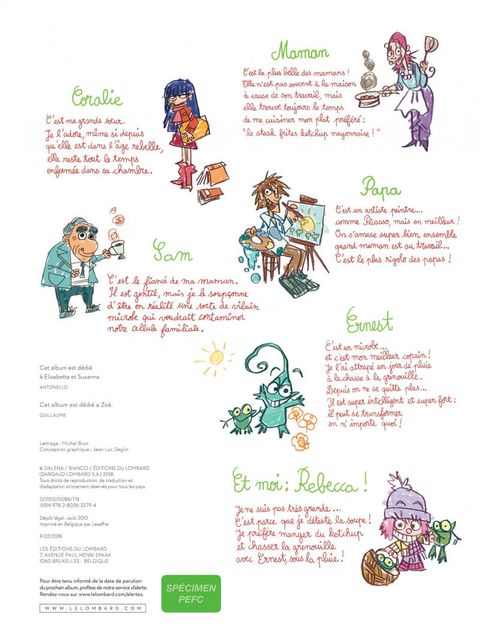 Maman
C'est la plus belle des mamans !
Elle n'est pas souvent à la maison
à cause de son travail, mais
elle trouve toujours le temps
de me cuisiner mon plat préféré :
"le steak frites ketchup mayonnaise !"
Coralie
C'est ma grande sœur.
Je l'adore, même si depuis
qu'elle est dans l'âge rebelle,
elle reste tout le temps
enfermée dans sa chambre.
Papa
C'est un artiste peintre...
comme Picasso, mais en meilleur !
On s'amuse super bien ensemble
quand maman est au travail...
C'est le plus rigolo des papas !
Sam
C'est le fiancé de ma maman.
Il est gentil, mais je le soupçonne
d'être en réalité une sorte de vilain
microbe qui voudrait contaminer
notre cellule familiale.
Ernest
C'est un microbe...
et c'est mon meilleur copain !
Je l'ai attrapé un jour de pluie
à la chasse à la grenouille.
Depuis on ne se quitte plus...
Il est super intelligent et super fort :
il peut se transformer
en n'importe quoi !
Cet album est dédié
à Elisabetta et Susanna.
ANTONELLO
Cet album est dédié à Zoé.
GUILLAUME
Lettrage : Michel Brun
Conception graphique : Jean-Luc Deglin
© DALENA / BIANCO / ÉDITIONS DU LOMBARD
(DARGAUD-LOMBARD S.A.) 2018
Tous droits de reproduction, de traduction et
d'adaptation strictement réservés pour tous les pays.
D/2013/0086/174
ISBN 978-2-8036-3279-4
Dépôt légal : août 2013
Imprimé en Belgique par Lesaffre
R 02/2018
LES ÉDITIONS DU LOMBARD
7, AVENUE PAUL-HENRI SPAAK
1060 BRUXELLES - BELGIQUE
Et moi : Rebecca !
Je ne suis pas très grande...
C'est parce que je déteste la soupe !
Je préfère manger du ketchup
et chasser la grenouille
avec Ernest, sous la pluie !
Pour être tenu informé de la date de parution
du prochain album, profitez de notre service d'alerte.
Rendez-vous sur www.lelombard.com/alertes.
WWW.LELOMBARD.COM
SPÉCIMEN
PEFC